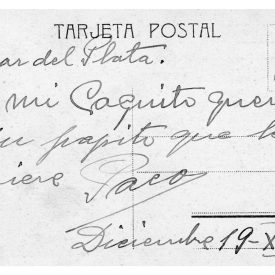 TARJETA POSTAL
ar del Plata.
mi Coquito quer
u papito que
iere Paco
Diciembre 19-X